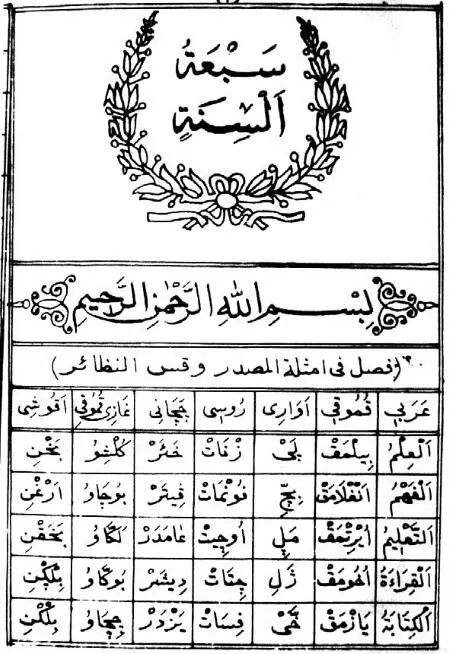 سَبْعَةُ
اَلْسِنَةٍ
بِسْمِ اللهِ الرَّحْمٰنِ الرَّحِيمِ
(فصل فى امثلة المصدر وقس النظائر)
عَرَبِي قُمُوقِي اَوَارِى رُوسِى چَچَانِى غَازِى قُمُوقِي اَقُوشِى
اَلْعِلْمُ بِيلْمَقْ زْنَاتْ خَئَرْ بَخْنِ
اَلْفَهْمُ اَنْغْلَامَقْ قِيتَرْ بُوچَاوُ اَرْغْنِ
اَلتَّعْلِيمُ اُيْرَتْمَقْ مَلِ اُوچِيتْ عَامَدَرْ لَكَّاوُ بَخَقْنِ
اَلْقِرَاءَةُ اُهُومَقْ ژَلِ چِتَاتْ دِيشَرْ بُوكَّاوُ بِلْچِنِ
اَلْكِتَابَةُ يَازْمَقْ فِسَاتْ يَزْدَرْ چِچَاوُ بِلْكْنِ